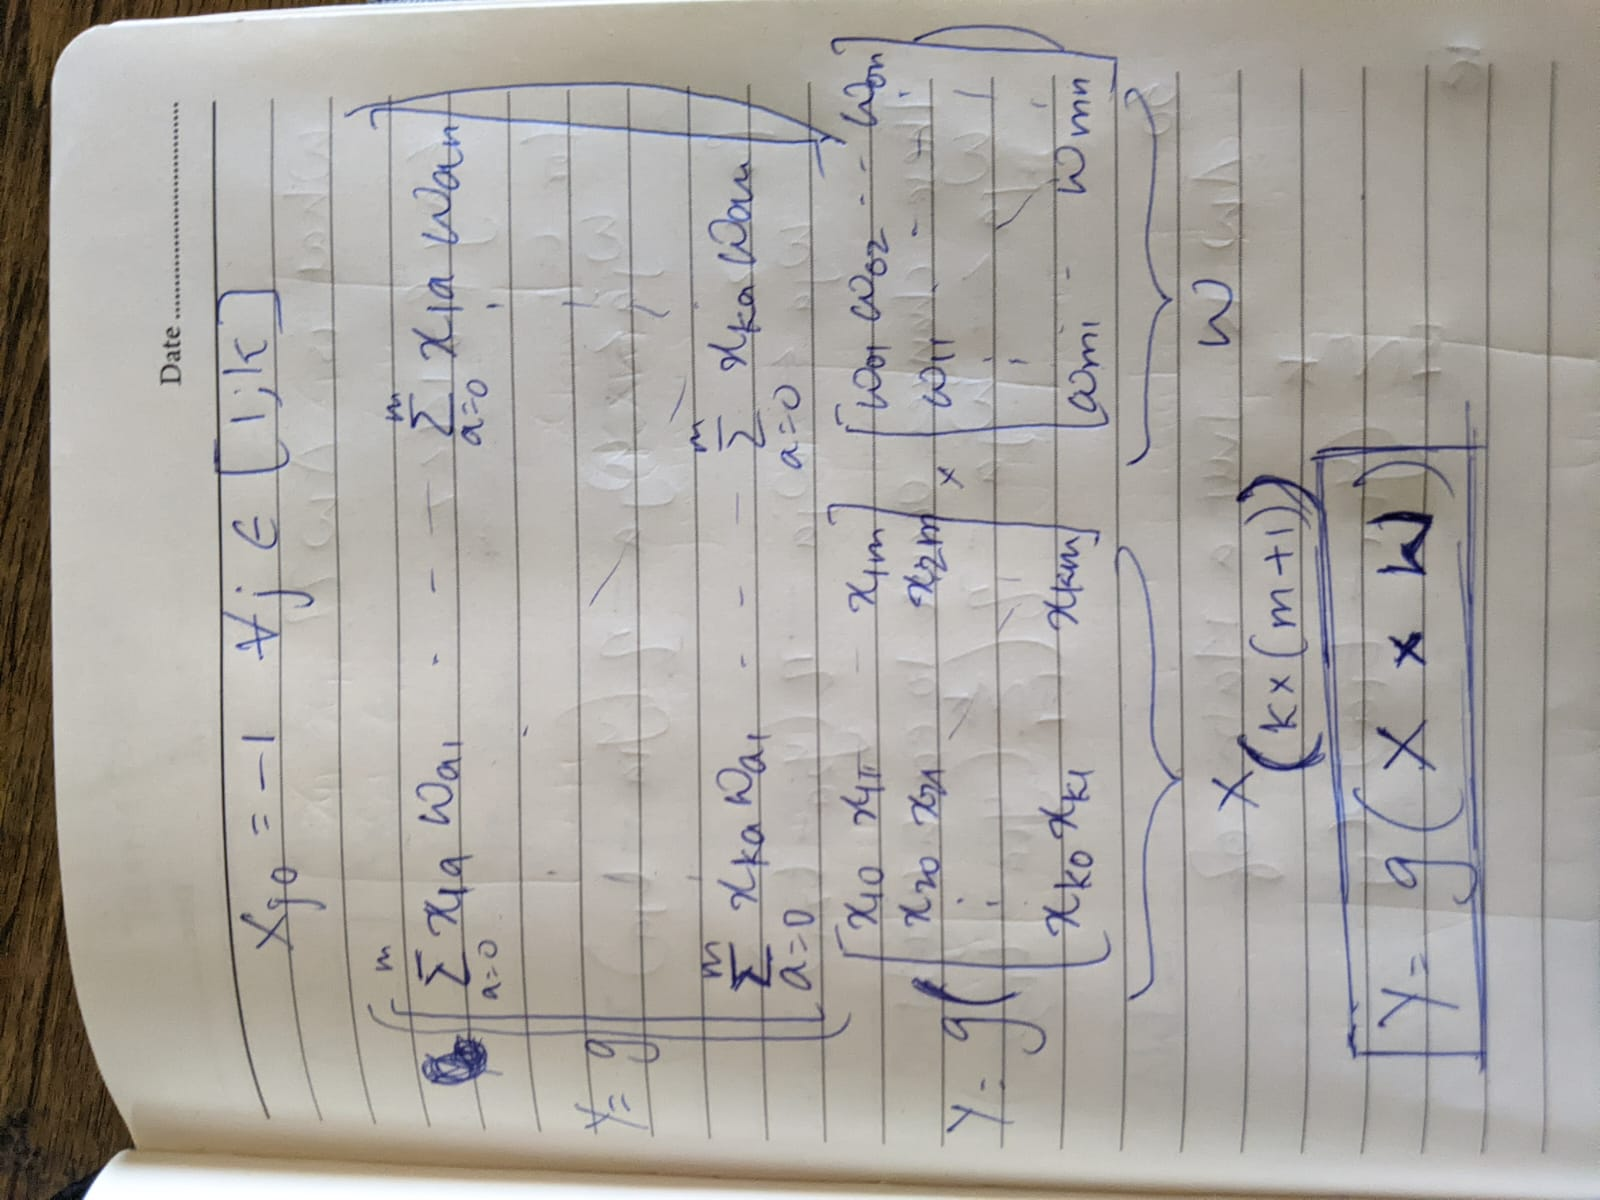 Date ....................
X_{j0} = -1 ∀ j ∈ [1;k]
Y = g ( [ \sum_{a=0}^{m} x_{1a} w_{a1} . - - \sum_{a=0}^{m} x_{1a} w_{an}
\sum_{a=0}^{m} x_{ka} w_{a1} - - - \sum_{a=0}^{m} x_{ka} w_{an} ] )
Y = g ( [ x_{10} x_{11} - x_{1m}
x_{20} x_{21} x_{2m}
x_{k0} x_{k1} x_{km} ] × [ w_{01} w_{02} - - - w_{0n}
w_{11} - - -
w_{m1} - w_{mn} ] )
X (k × (m+1)) W
Y = g ( X × W )